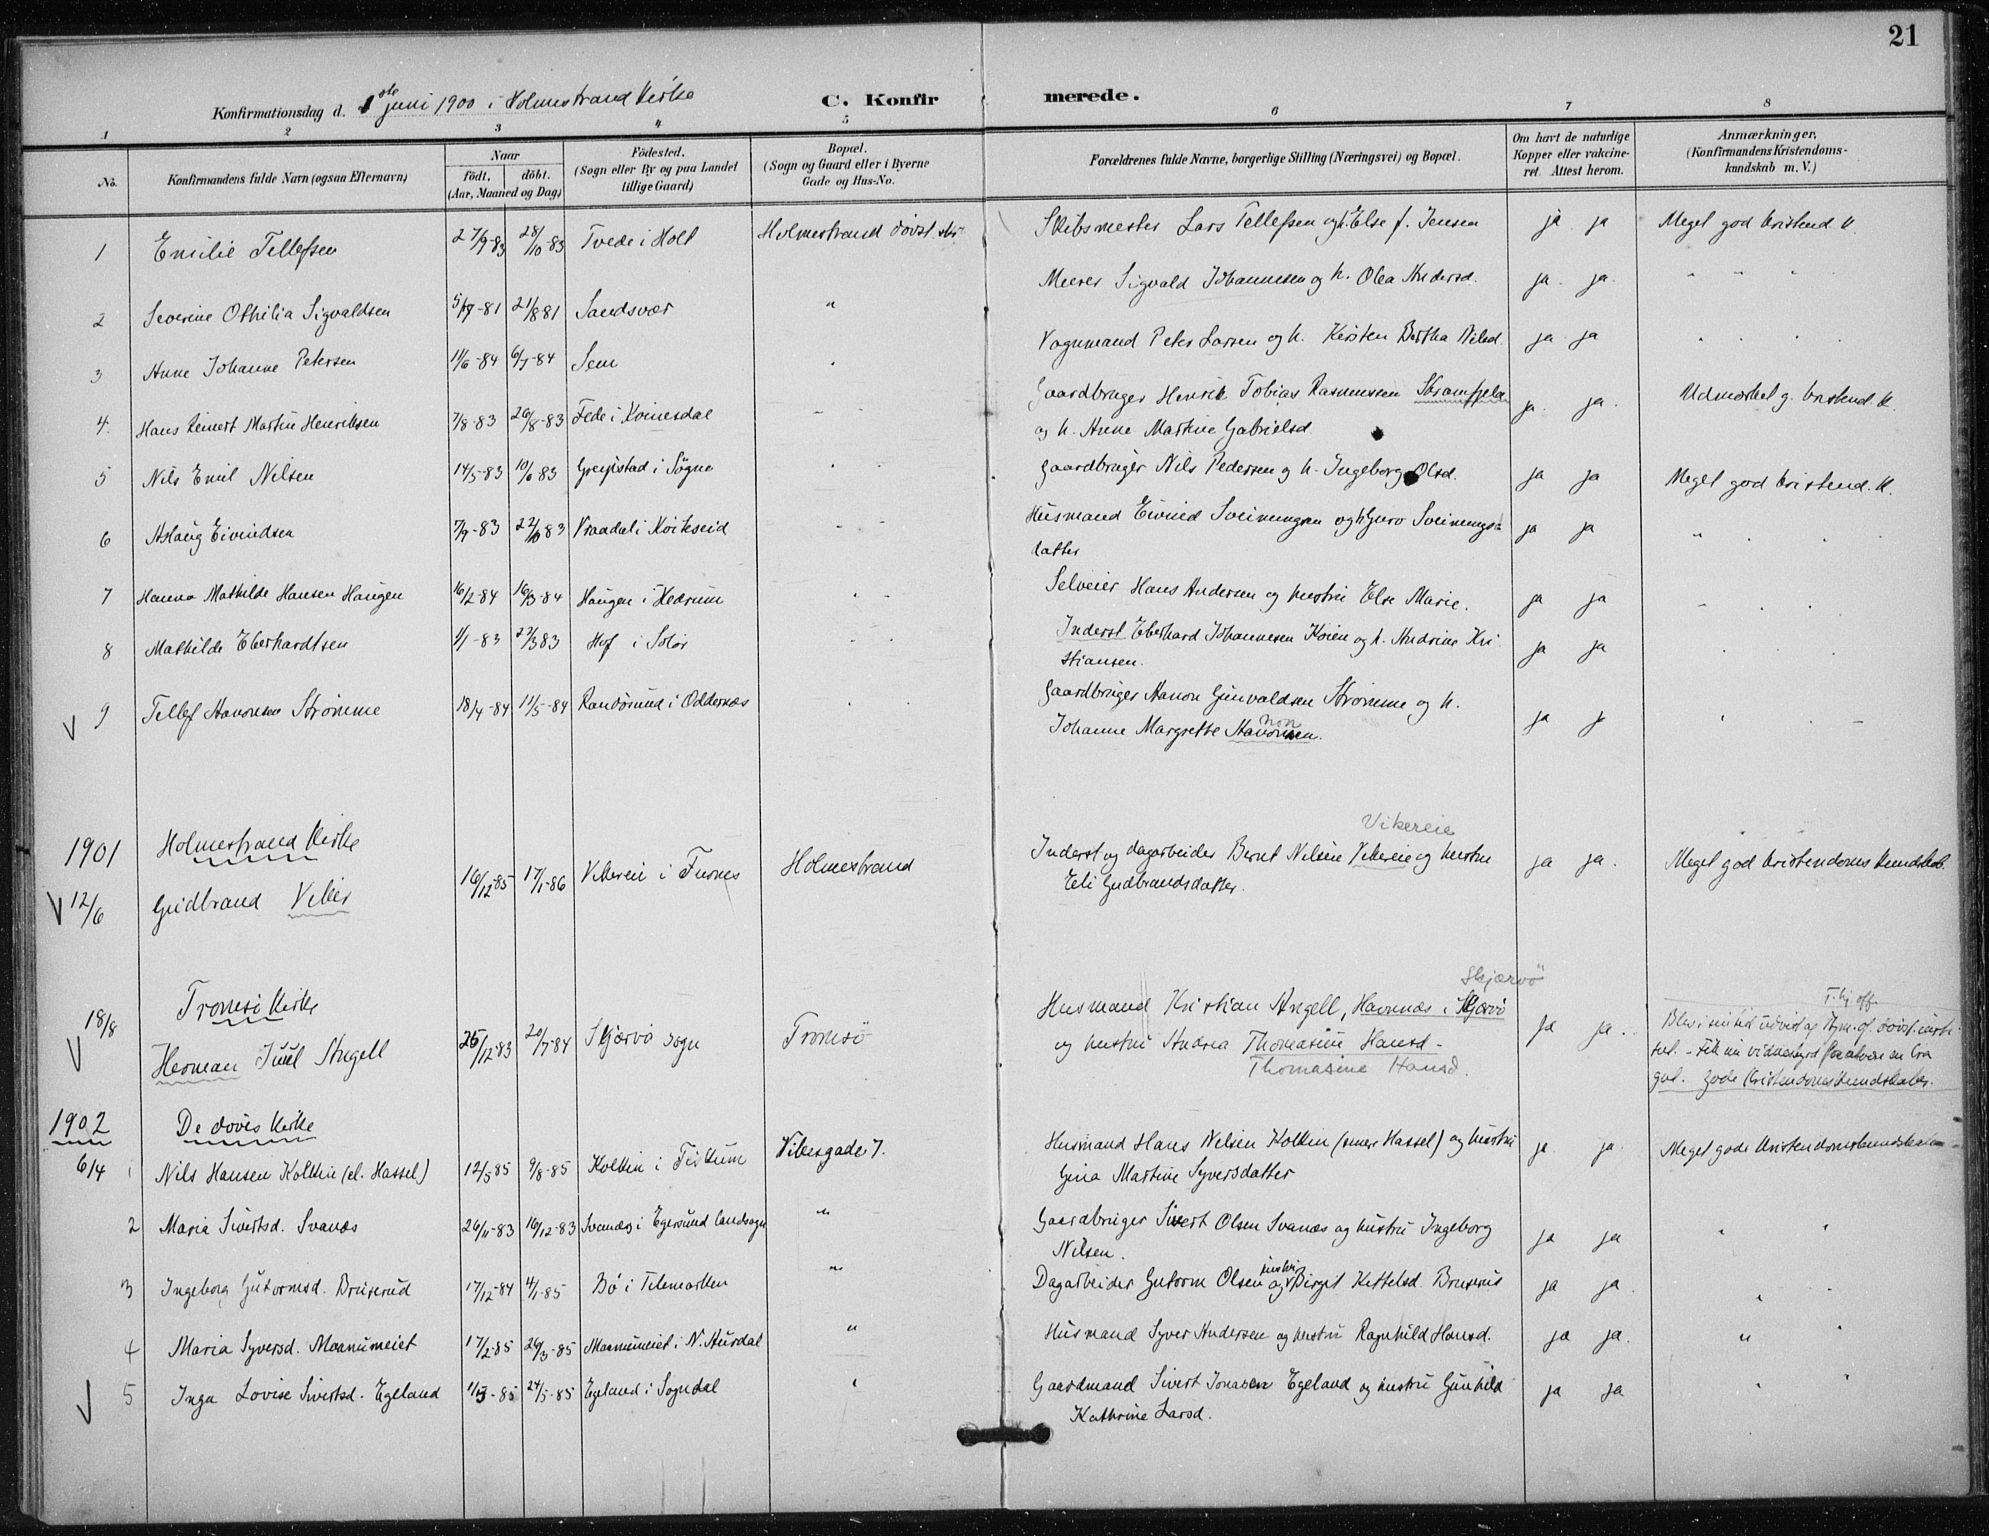 21
Konfirmationsdag d. 1ste juni 1900 i Holmestrand Kirke C. Konfirmerede.
1 2 3 4 5 6 7 8
No. Konfirmandens fulde Navn (ogsaa Efternavn) Naar födt. döbt. (Aar, Maaned og Dag) Födested. (Sogn eller By og paa Landet tillige Gaard) Bopæl. (Sogn og Gaard eller i Byerne Gade og Hus-No. Forældrenes fulde Navne, borgerlige Stilling (Næringsvei) og Bopæl. Om havt de naturlige Kopper eller vakcineret. Attest herom. Anmærkninger, (Konfirmandens Kristendomskundskab m. V.)
1 Emilie Tellefsen 27/9-83 28/10-83 Tvede i Holt Holmestrand Skibsmester Lars Tellefsen og h. Else f. Jensen ja ja Meget god kristend. k.
2 Severine Othilia Sigvaldsen 21/8 81 Sandsvær " Murer Sigvald Johannesen og h. Olea Andersd. ja. ja. " " "
3 Anne Johanne Petersen 11/6-84 6/7-84 Sem " Vognmand Peter Larsen og h. Kirsten Bertha Nilsd. ja ja
4. Hans Reinert Martin Henriksen 7/8-83 26/8-83 Fede i Kvinesdal Gaardbruger Henrik Tobias Rasmussen
og h. Anne Martine Gabrielsd. ja. ja. Udmærket g. kristend. k.
5 Nils Emil Nilsen 14/5-83 10/6 83 Greipstad i Søgne Gaardbruger Nils Pedersen og h. Ingeborg Olsd. ja ja Meget god kristend. k.
6 Aslaug Eivindsen 7/9-83 Vraadal i Kviteseid Husmand Eivind Sveinungsen og h. Guro Sveinungs-
datter ja ja
7 Hanna Mathilde Hansen Haugen 16/2-84 16/3-84 Haugen i Hedrum Selveier Hans Andersen og hustru Else Marie. ja ja
8 Mathilde Eberhardtsen 1/1-83 22/3 83 Hof i Solør Inderst Eberhard Johannesen Koien og h. Andrine Kri-
stiansen. ja ja
V 9 Tellef Hanonsen Strømme 18/4-84 11/5-84 Randøsund i Oddernes Gaardbruger Hanon Gunvaldsen Strømme og h.
Johanne Margrethe ja
1901 Holmestrand Kirke
Vikereie
V 12/6 Gudbrand Viker 16/12-85 17/1-86 Vikereie i Furnes Holmestrand Inderst og dagarbeider Bernt Nilsen Vikereie og hustru
Eli Gudbrandsdatter. ja ja. Meget god kristendomskundskab.
18/8 Tromsö Kirke
Skjærvö
V Herman Juul Angell 25/12-83 20/7-84 Skjærvö sogn Tromsö Husmand Kristian Angell, Havnnæs i Skjærvö
og hustru Andrea Thomasine Hansd.
Thomasine Hansd. ja ja.
gode kristendomskundskaber.
1902 De døves Kirke
6/4 1 Nils Hansen Kolkin (el. Hassel) 12/5-85 9/8-85 Kolkin i Fiskum Vibesgade 7. Husmand Hans Nilsen Kolkin (senere Hassel) og hustru
Gina Martine Syversdatter ja ja. Meget gode kristendomskundskaber
2 Maria Sivertsd. Svanæs 26/11-83 16/12-83 Svanæs i Egersund landsogn " Gaardbruger Sivert Olsen Svanæs og hustru Ingeborg
Nilsen. ja ja
3 Ingeborg Gutormsd. Bruserud 17/12-84 4/1-85 Bö i Telemarken " Dagarbeider Gutorm Olsen og hustru Birgit Kittelsd. Bruserud ja ja
4 Maria Syversd. Maanumeiet 17/2-85 26/3-85 Maanumeiet i N. Aurdal " Husmand Syver Andersen og hustru Ragnhild Hansd. ja ja. "
V 5 Inga Lovise Sivertsd. Egeland 24/5-85 Egeland i Sogndal " Gaardmand Sivert Jonassen Egeland og hustru Gunhild
Kathrine Larsd. ja ja